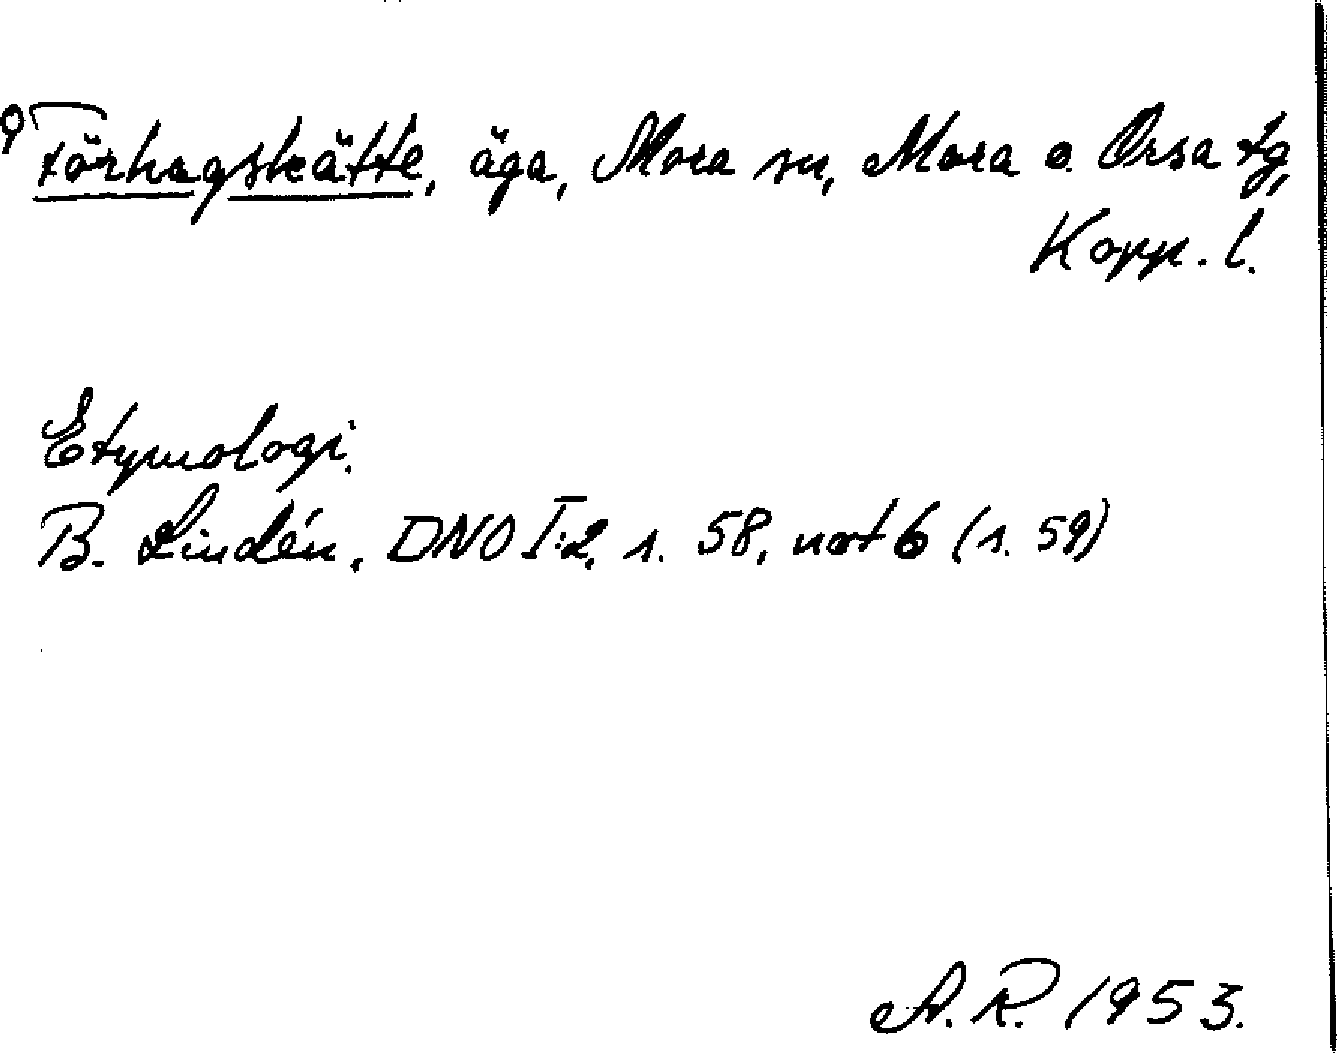 Förhagskätte, äga, Mora sn, Mora o. Orsa tg,
Kopp. l.
Etymologi.
B. Lindén, DNO I:2, s. 58, not 6 (s. 59)
A. R. 1953.